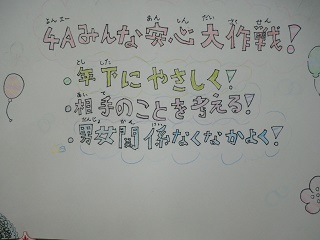 4Aみんな安心大作戦!
・年下にやさしく!
・相手のことを考える!
・男女関係なくなかよく!